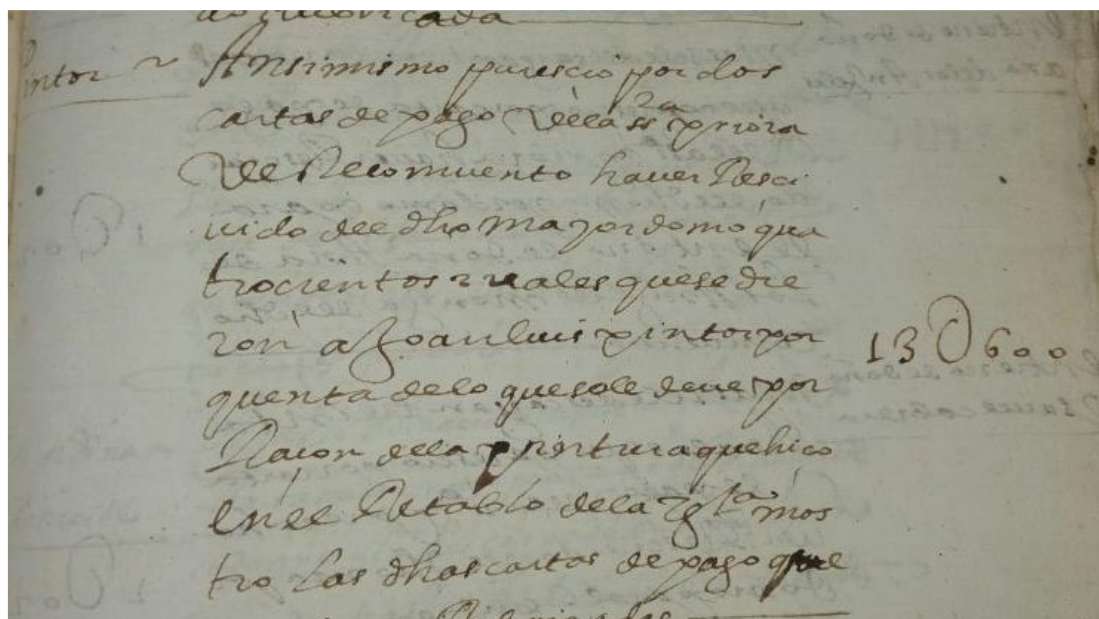 do rubricada
Pintor ~ Ansimismo parescio por dos
cartas de pago de la ss.ra priora
del Recomvento haver Resci
vido del dho mayordomo qua
trocientos rreales que se die
ron a Joan luis pintor por
quenta de lo que se le deve por
Racon de la pintura que hico
en el Retablo de la yglª mos
tro las dhas cartas de pago que
13U600